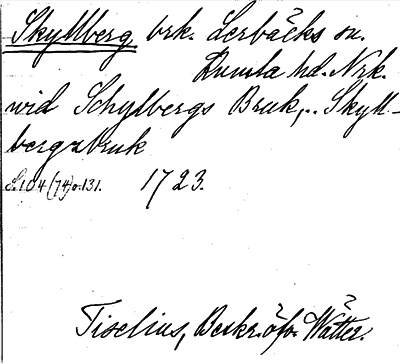 Skyllberg brk. Lerbäcks sn.
Kumla hd. Nrk.
wid Schylbergs Bruk,.. Skyll-
bergzbruk
S. 104 (74) o. 131. 1723.
Tiselius, Beskr. öfv. Wätter.